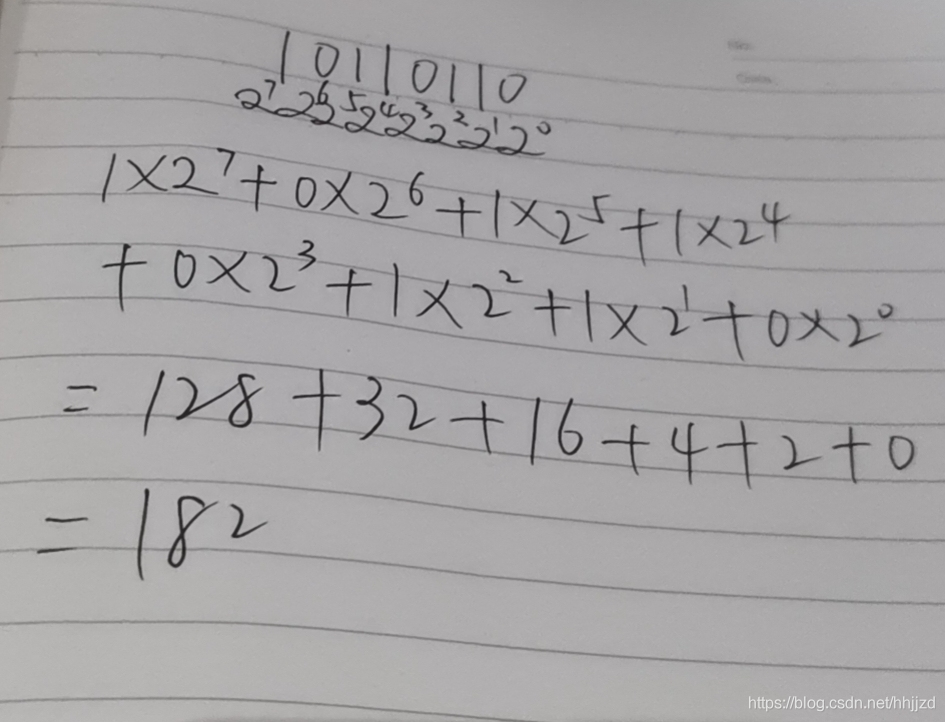 10110110
2⁷2⁶2⁵2⁴2³2²2¹2⁰
1×2⁷+0×2⁶+1×2⁵+1×2⁴
+0×2³+1×2²+1×2¹+0×2⁰
=128+32+16+4+2+0
=182
https://blog.csdn.net/hhjjzd